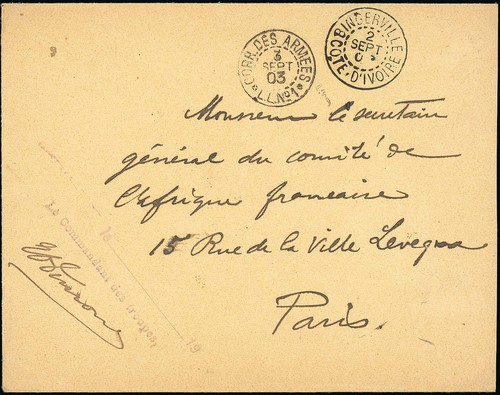 CORR. DES ARMÉES
3
SEPT
03
L.L. No 1
BINGERVILLE
2
SEPT
COTE D'IVOIRE
Monsieur le secrétaire
général du comité de
l'Afrique française
15 Rue de la Ville Leveque
Paris.
Le Commandant des troupes
19